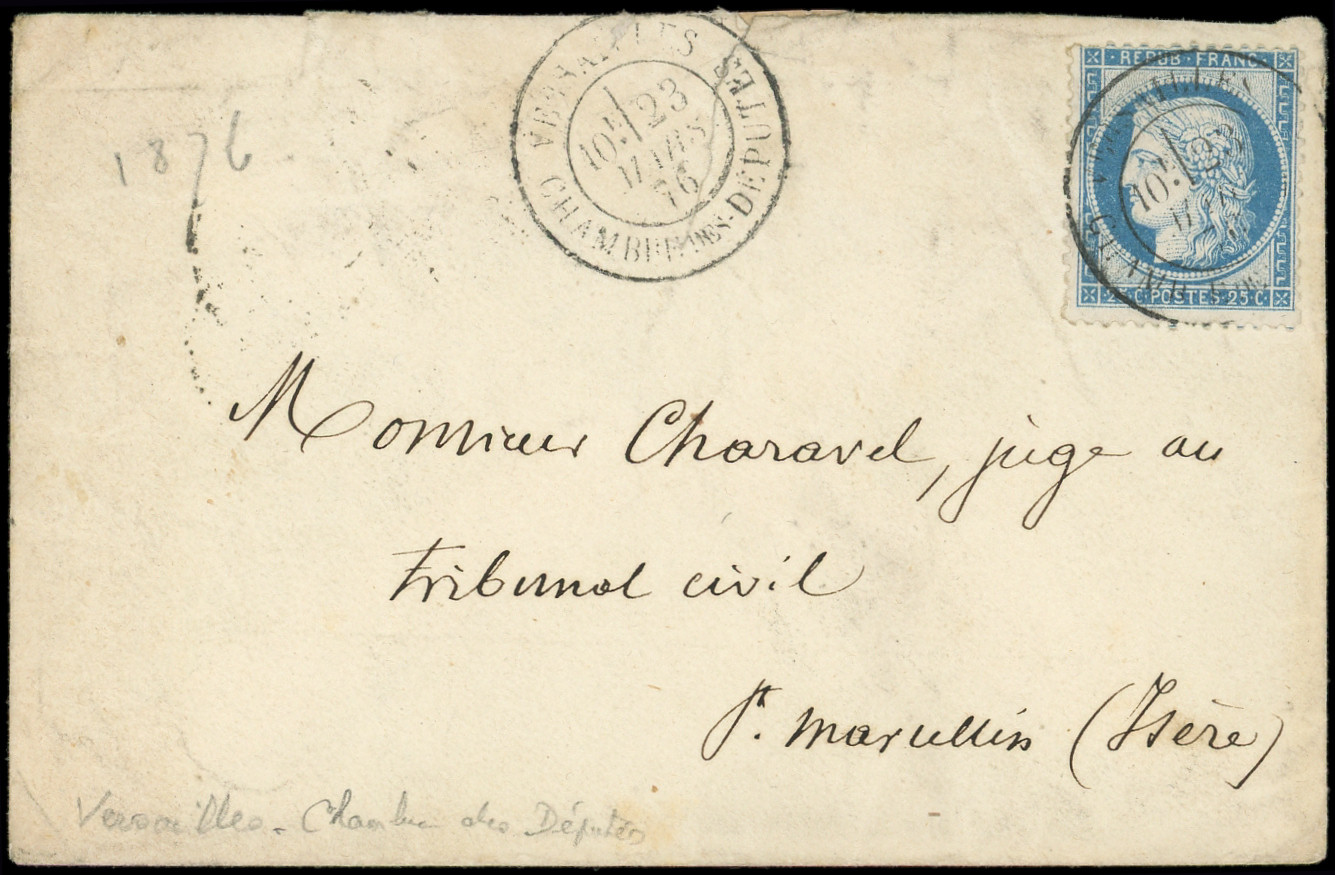 1876
VERSAILLES
CHAMBRE DES-DÉPUTÉS
10E/23
MARS
76
REPUB·FRANC
10E/23
MAR
25·C·POSTES·25·C·
Monsieur Charavel, juge au
Tribunal civil
St. Marcellin (Isère)
Versailles - Chambre des Députés